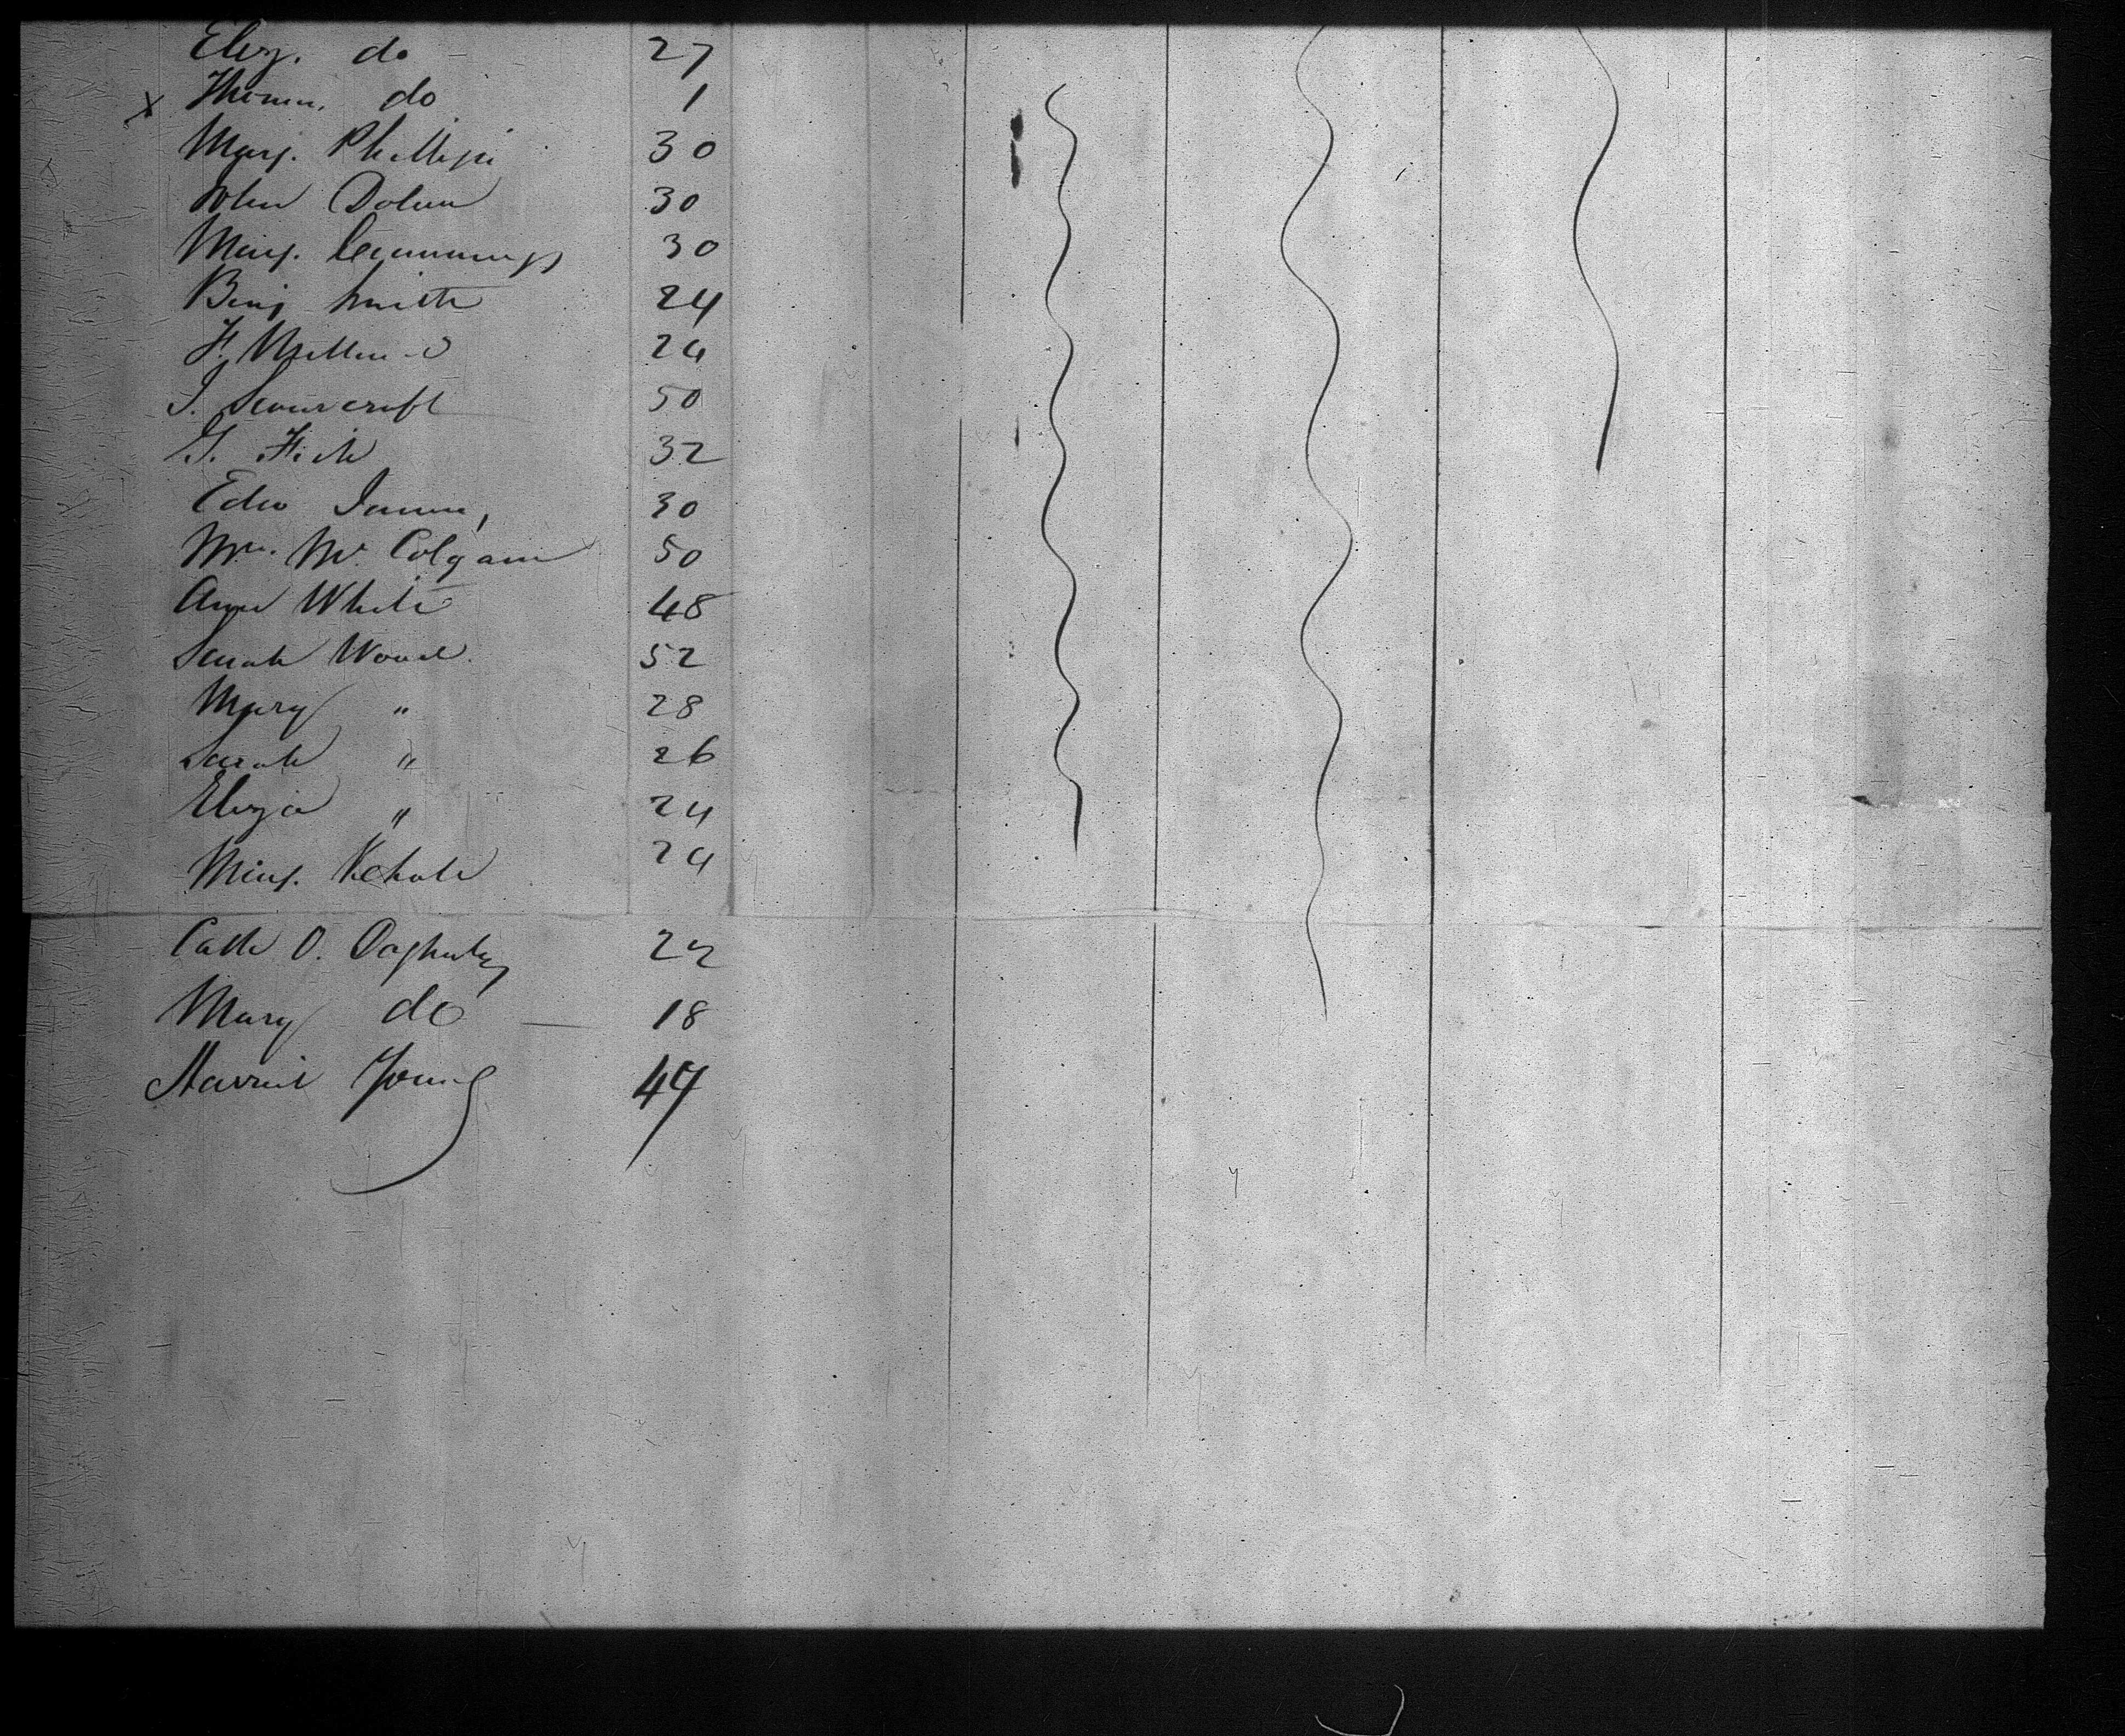 Eliz. do 27
x Thomas. do 1
Marg. Phillips 30
John Dolan 30
Marg. Cummings 30
Benj Smith 24
F. 24
J. Scowcroft 50
G. Fish 32
Edw 30
Mc. Colgan 50
Ann White 48
Sarah Wood. 52
Mary " 28
Sarah " 26
Eliza " 24
Marg. 24
Cath O. Dogherty 22
Mary do 18
Harriet Young 47